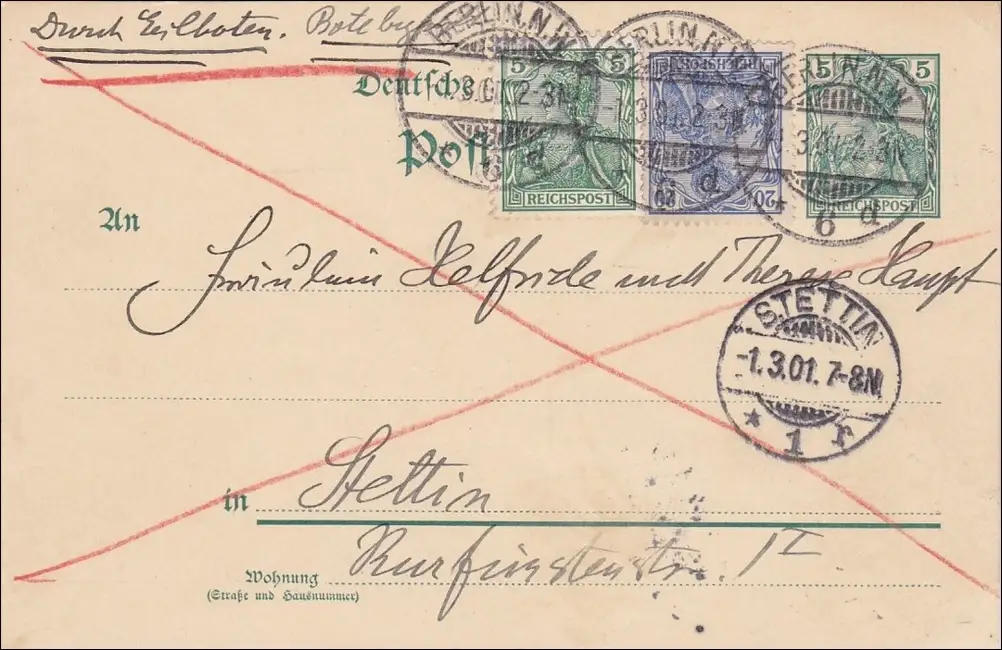 Durch Eilboten.
5 5 REICHSPOST
20 20 REICHSPOST
5 5 REICHSPOST
BERLIN.N.W. 3.01. 2-3N. 6 d
BERLIN.N.W. -1.3.01. 2-3N. d
BERLIN.N.W. 3.01. 2-3N. * 6 d
Deutsche
Post
An
Fräulein Helfride und Therese Haupt
STETTIN
-1.3.01. 7-8N.
* 1 r
in Stettin
Wohnung Kurfürstenstr. 1 II
(Straße und Hausnummer)